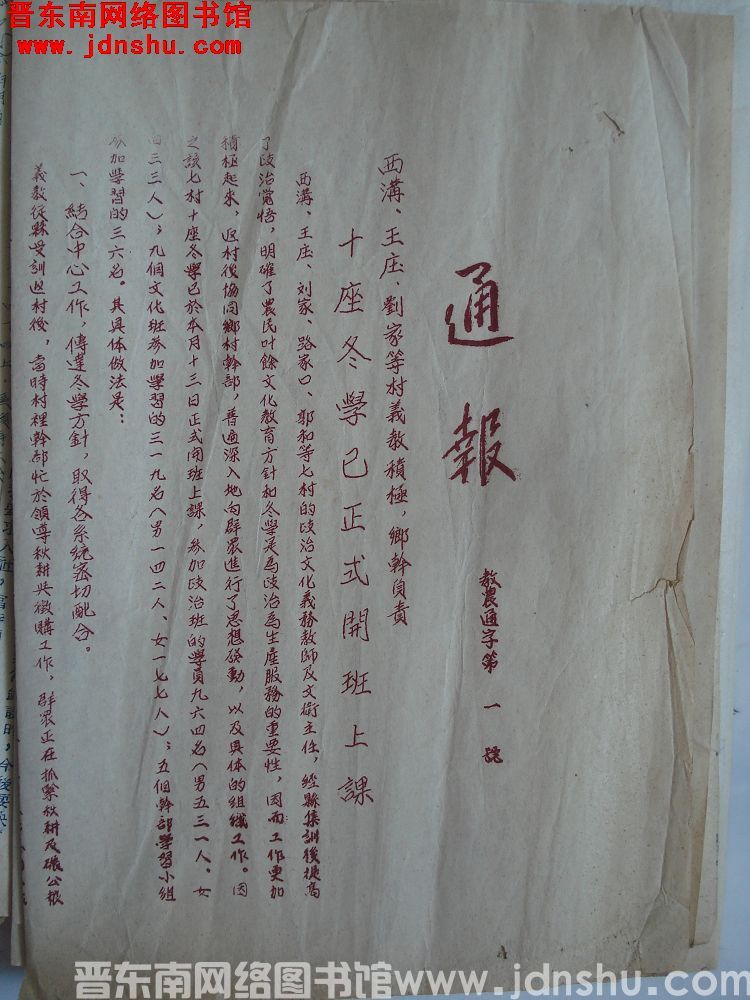 晋东南网络图书馆
www.jdnshu.com
通報
教農通字第一號
西溝、王庄、劉家等村義教積極,鄉幹負責
十座冬學已正式開班上課
西溝、王庄、刘家、路家口、郭和等七村的政治文化義務教師及文衛主任,經縣集訓後提高
了政治覚悟,明確了農民业餘文化教育方針和冬學是為政治為生產服務的重要性,因而工作更加
積極起來,返村後協同鄉村幹部,普遍深入地向群眾進行了思想發動,以及具体的組織工作。因
之該七村十座冬學已於本月十三日正式開班上課,參加政治班的學員九六四名(男五三一人、女
四三三人);九個文化班參加學習的三一九名(男一四二人、女一七七人);五個幹部學習小組
參加學習的三六名。其具体做法是:
一、結合中心工作,傳達冬學方針,取得各系統密切配合。
義教從縣受訓返村後,當時村裡幹部忙於領導秋耕與徵購工作,群眾正在抓緊秋耕及碾公粮
晋东南网络图书馆www.jdnshu.com